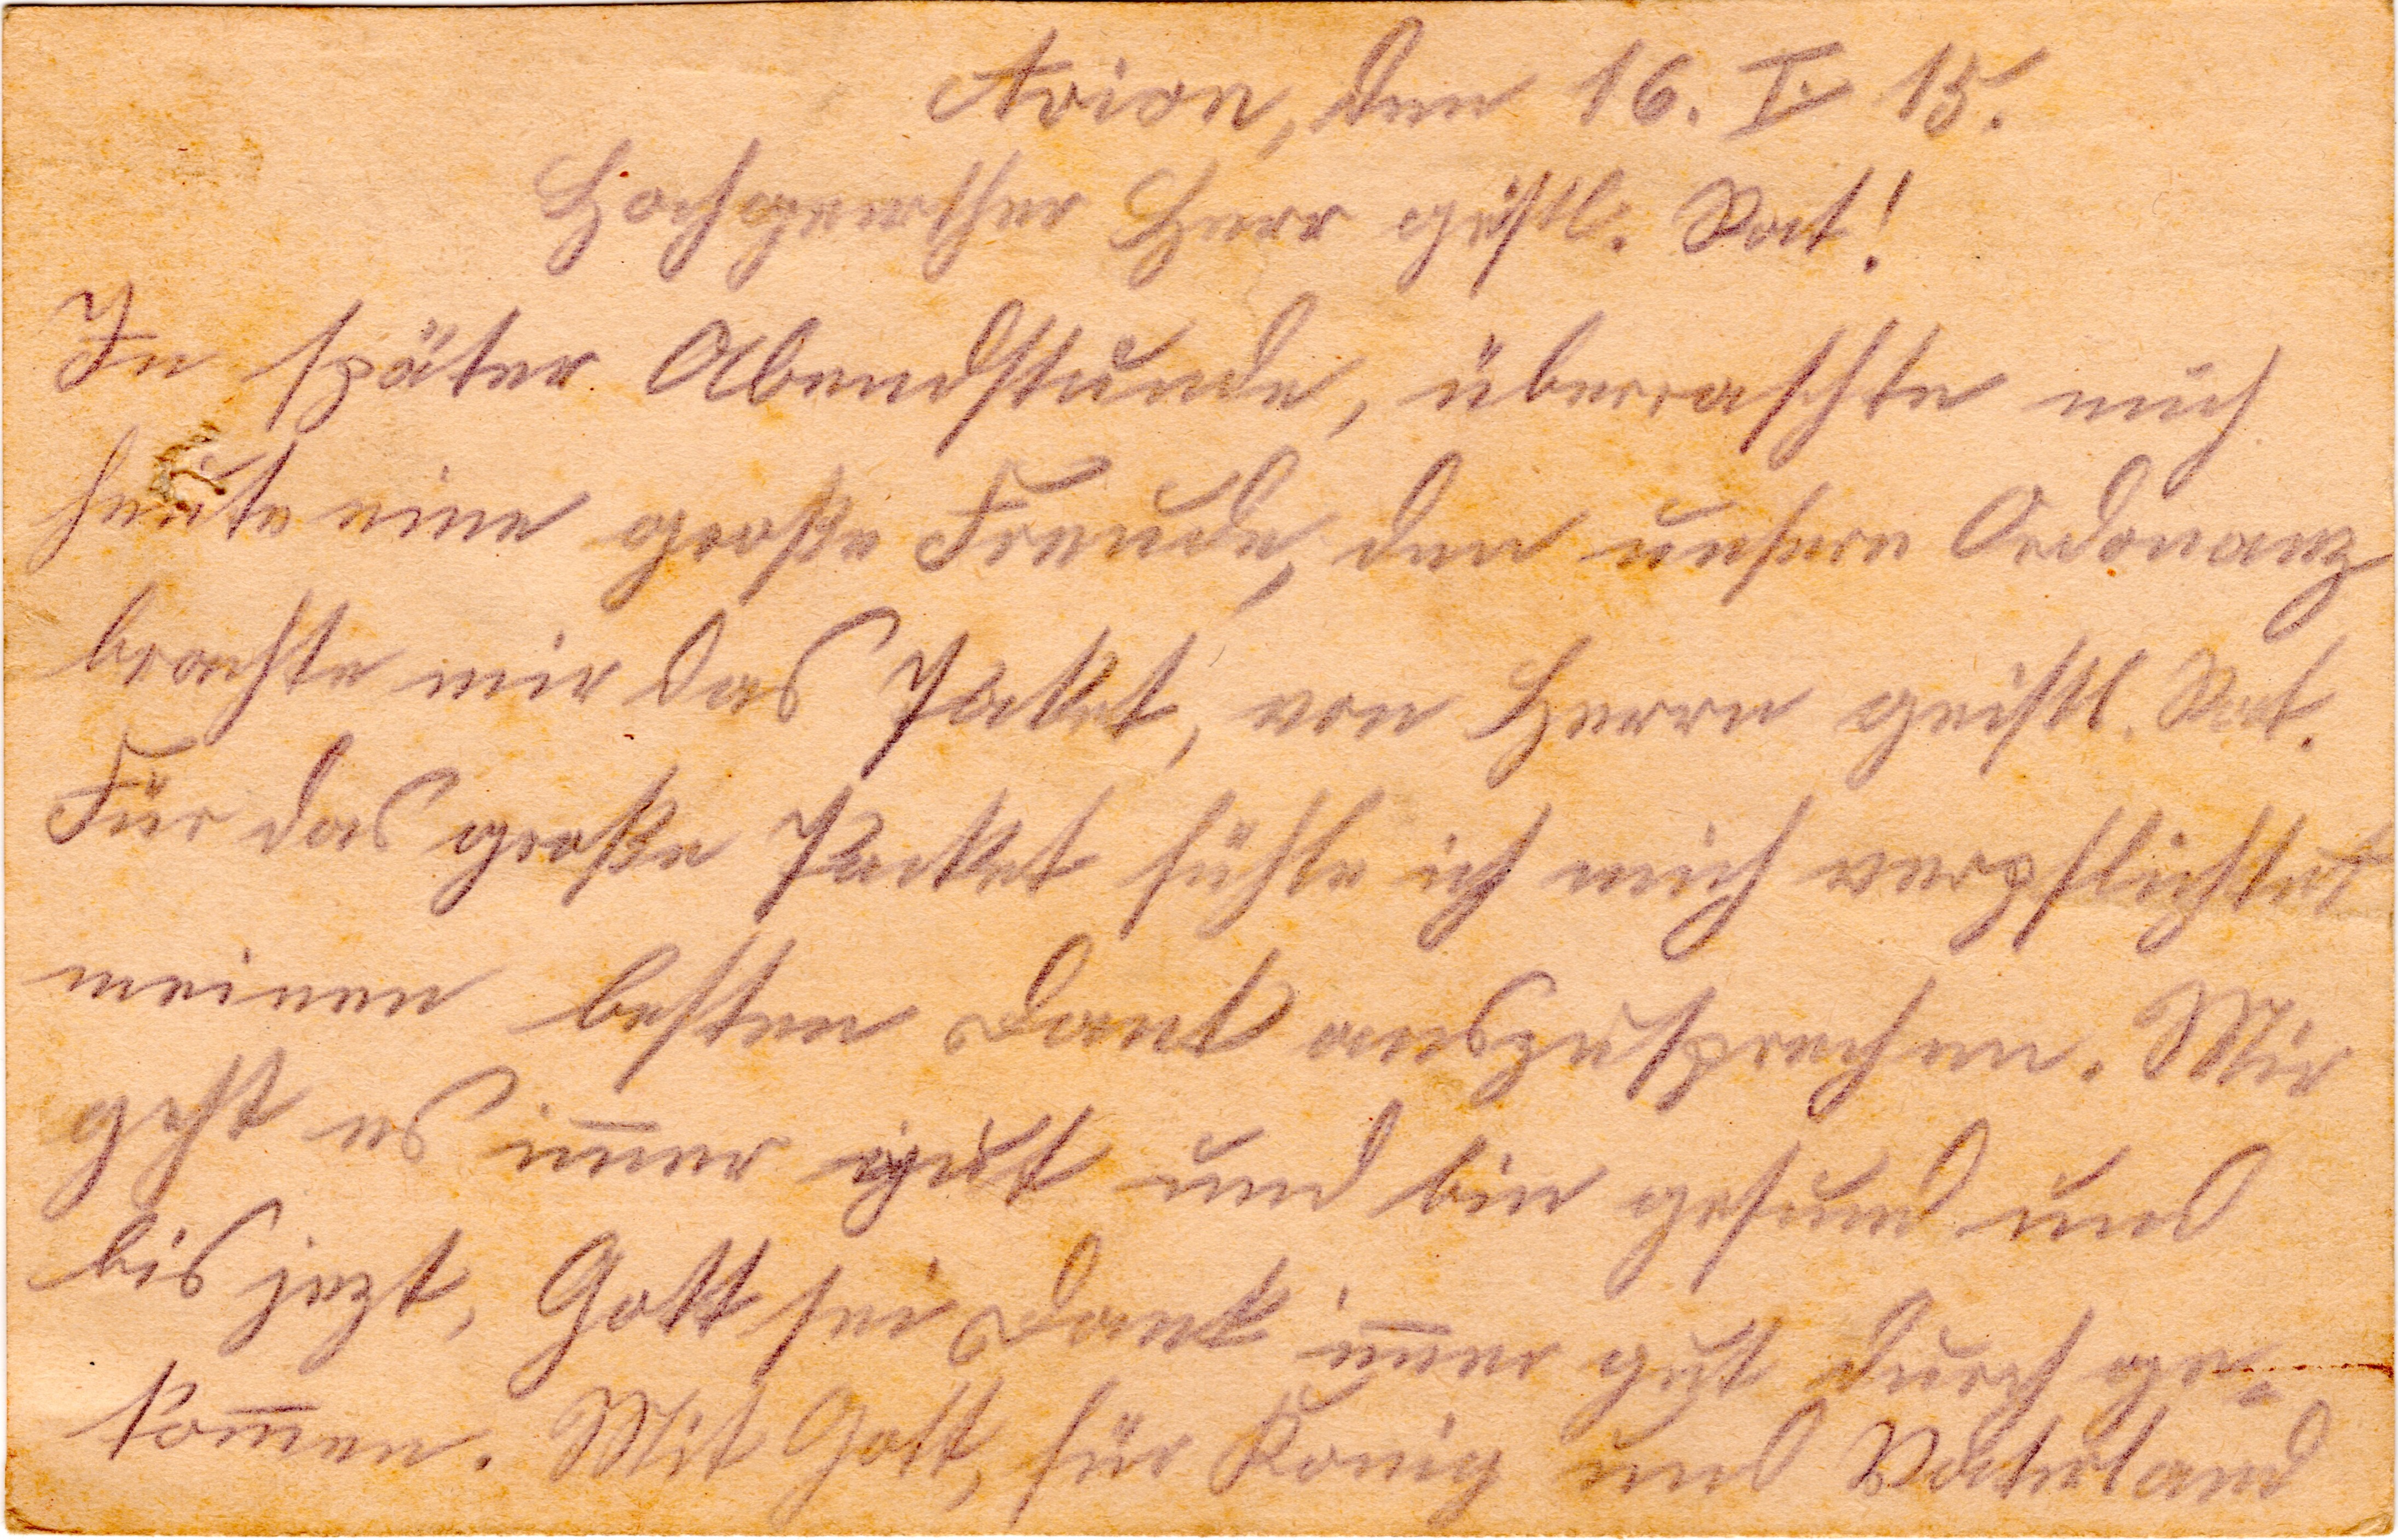 Avion, den 16. I. 15.
Hochgeerther Herr geistl. Rat!
In später Abendstunde, überraschte mich
heute eine große Freude, den unsere Ordonanz
brachte mir das Paket, von Herrn geistl. Rat.
Für das große Packet fühle ich mich verpflichtet
meinen besten Dank auszusprechen. Mir
geht es im̅er gut und bin gesund und
bis jezt, Gott sei Dank im̅er gut durch ge-
kom̅en. Mit Gott, für König und Vaterland